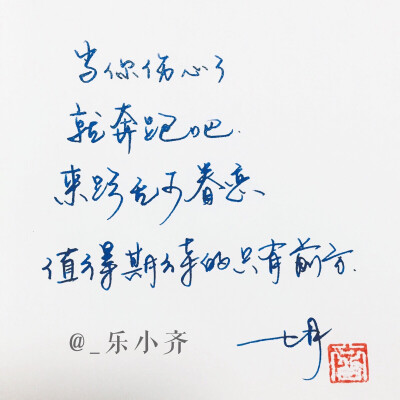 当你伤心了
就奔跑吧.
来路无可眷恋、
值得期待的只有前方.
七月
@_乐小齐